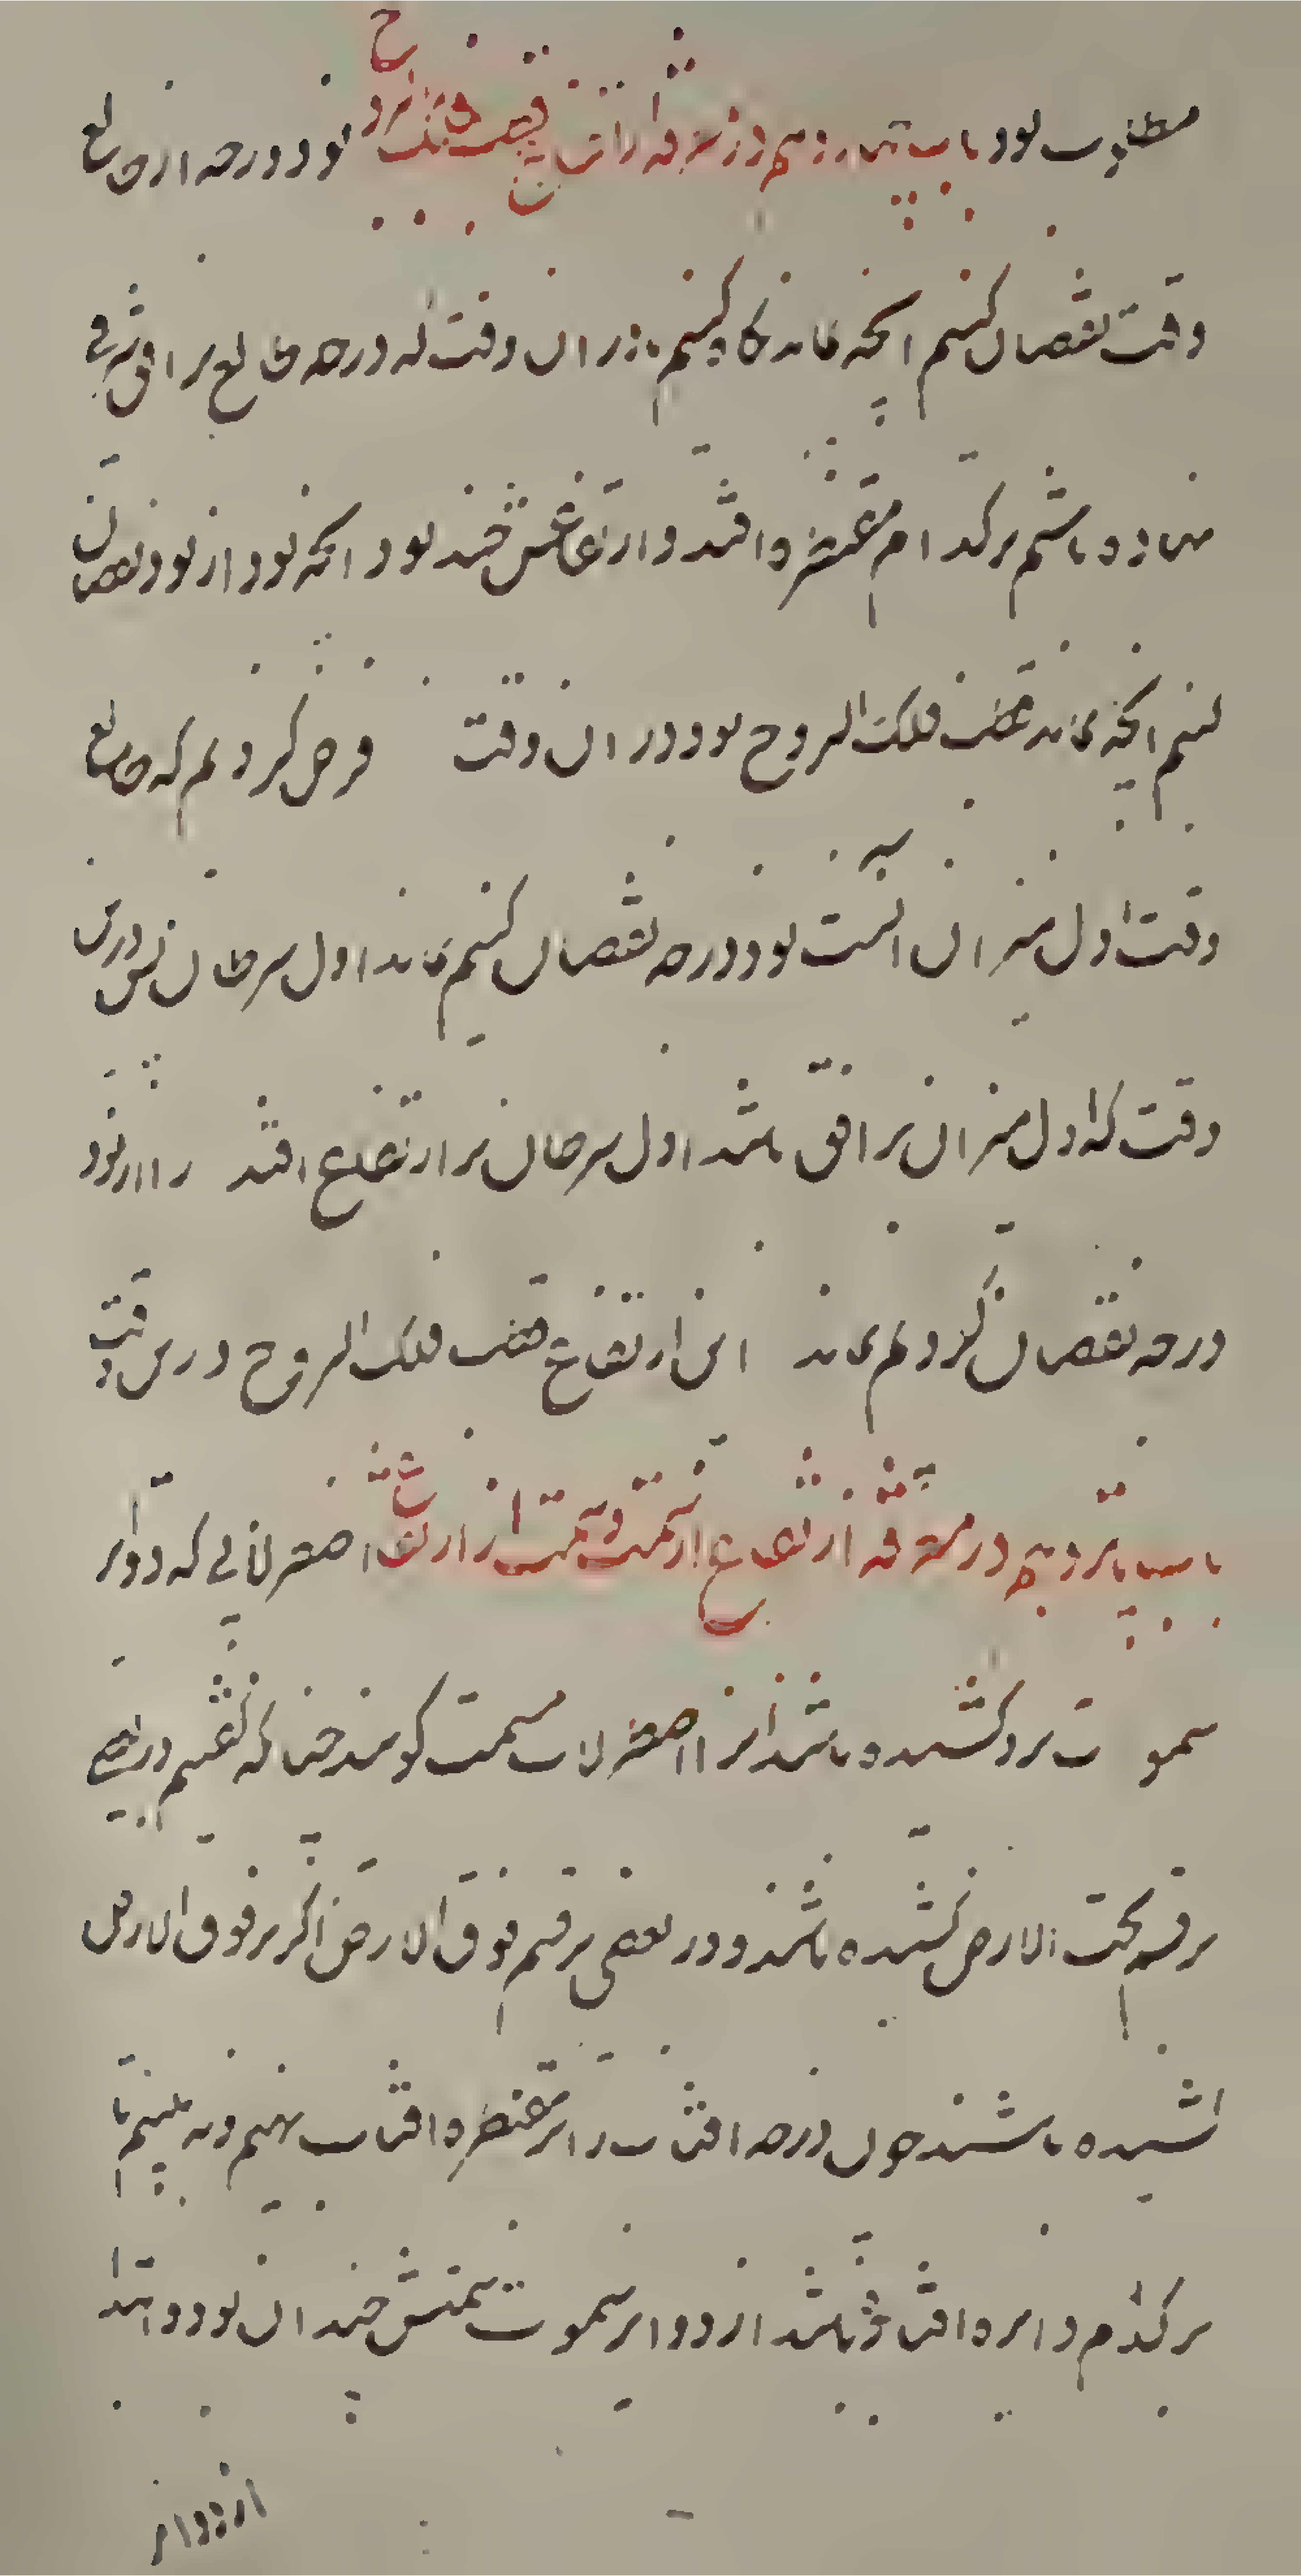 مطلوب بود باب چهاردهم در معرفة ارتفاع قطب فلک البروج نود درجه از طالع
وقت نقصان کنیم آنچه بماند نگاه کنیم در آن وقت که درجه طالع بر افق شرقی
نهاده باشیم بر کدام مقنطره افتد و ارتفاعش چند بود آنچه بود از نود نقصان
کنیم آنچه بماند قطب فلک البروج بود در آن وقت فرض کردیم که طالع
وقت اول میزان است نود درجه نقصان کنیم بماند اول سرطان پس درین
وقت که اول میزان بر افق باشد اول سرطان بر ارتفاع افتد از نود
درجه نقصان کردیم بماند این ارتفاع قطب فلک البروج درین وقت
باب پانزدهم در معرفة ارتفاع از سمت و سمت از ارتفاع اصطرلابی که دوایر
سموت برو کشیده باشند آنرا اصطرلاب مسمت گویند چنانکه گفتیم در بعضی
بر قسم تحت الارض کشیده باشند و در بعضی بر قسم فوق الارض اگر بر فوق الارض
کشیده باشند چون درجه آفتاب را بر مقنطره آفتاب نهیم و بنگریم تا
بر کدام دایره افتاده باشد از دوایر سموت سمتش چندان بود و ابتدا
از دوایر